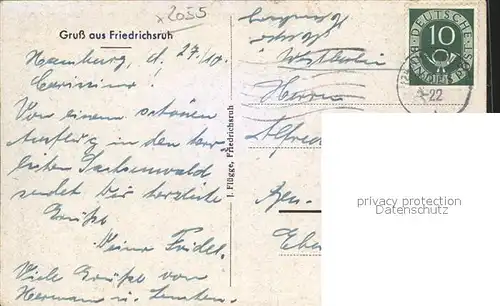 x 2055
Gruß aus Friedrichsruh
Hamburg, d. 27/10.
Carissimo!
Von einem schönen
Ausflug in den herr-
lichen Sachsenwald
sendet Dir herzliche
Grüße
Deine Friedel.
Viele Grüße von
Hermann u.
J. Flügge, Friedrichsruh
Westberlin
Herrn
Alfred
DEUTSCHE BUNDESPOST
10
-22
privacy protection
Datenschutz